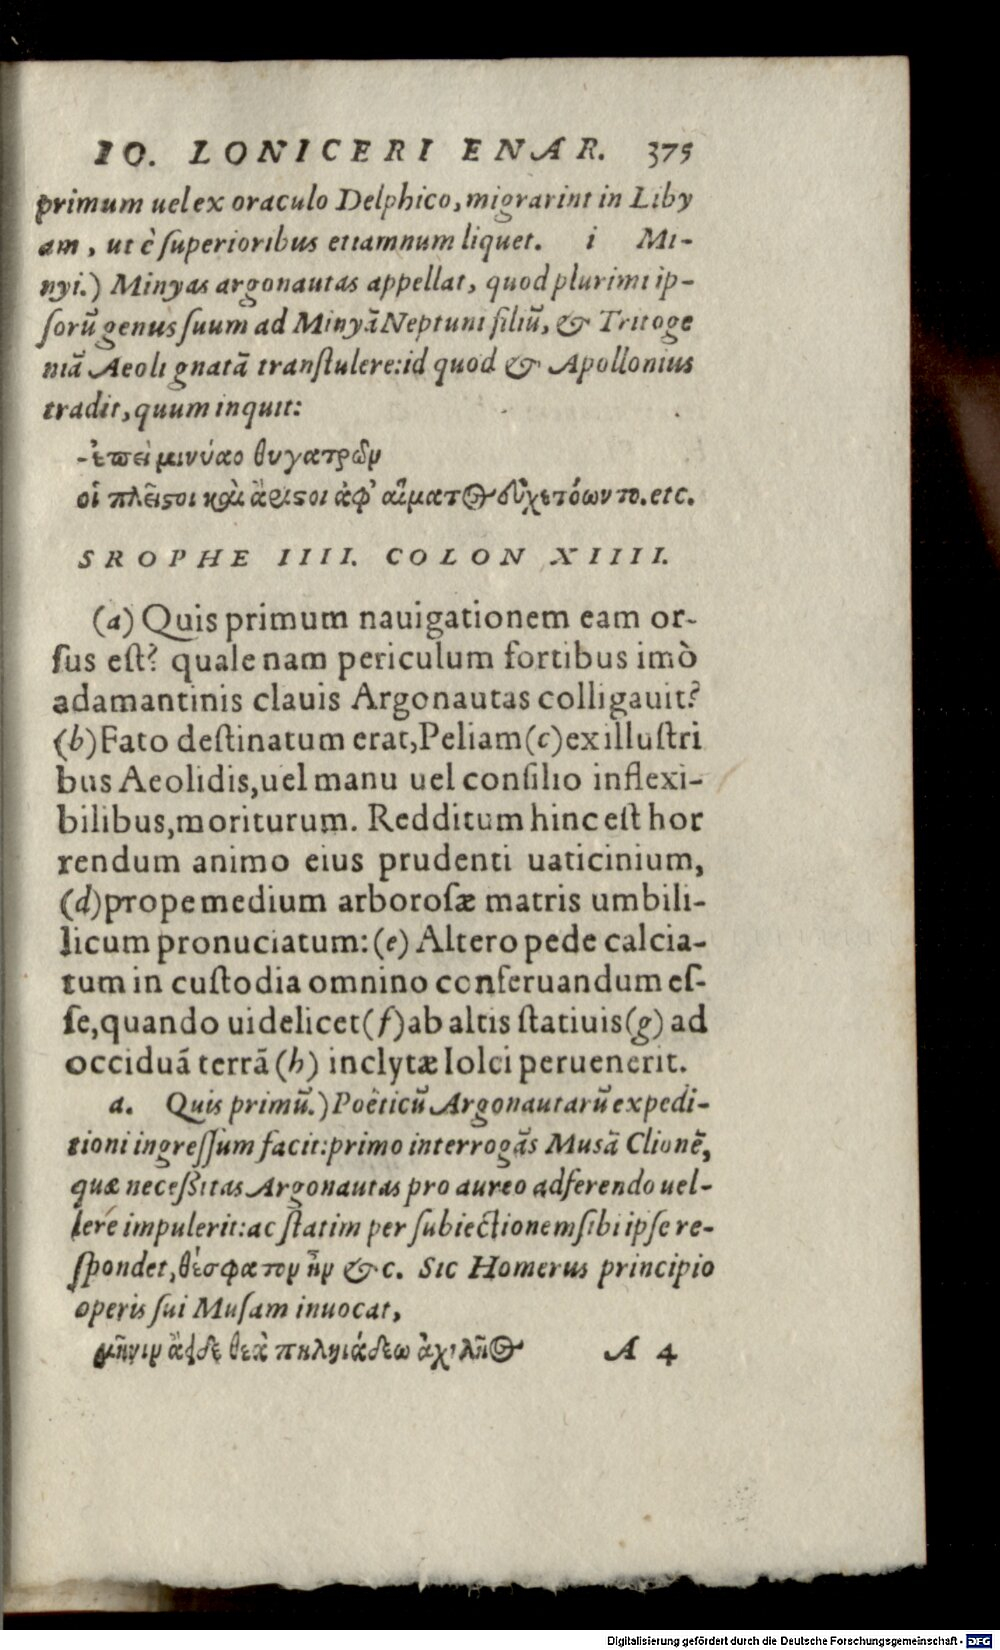 IO. LONICERI ENAR. 375
primum uel ex oraculo Delphico, migrarint in Liby
am, ut è superioribus etiamnum liquet. i Mi-
nyi.) Minyas argonautas appellat, quod plurimi ip-
sorũ genus suum ad Minyã Neptuni filiũ, & Tritoge
niã Aeoli gnatã transtulere: id quod & Apollonius
tradit, quum inquit:
-ἐπεὶ μινύαο θυγατρῶν
οἱ πλεῖστοι καὶ ἄριστοι ἀφ' αἵματος εὐχετόωντο. etc.
SROPHE IIII. COLON XIIII.
(a) Quis primum nauigationem eam or-
sus est? quale nam periculum fortibus imò
adamantinis clauis Argonautas colligauit?
(b) Fato destinatum erat, Peliam (c) ex illustri
bus Aeolidis, uel manu uel consilio inflexi-
bilibus, moriturum. Redditum hinc est hor
rendum animo eius prudenti uaticinium,
(d) prope medium arborosæ matris umbili-
licum pronuciatum: (e) Altero pede calcia-
tum in custodia omnino conseruandum es-
se, quando uidelicet (f) ab altis statiuis (g) ad
occiduã terrã (h) inclytæ Iolci peruenerit.
a. Quis primũ.) Poëticũ Argonautarũ expedi-
tioni ingressum facit: primo interrogãs Musã Clionẽ,
quæ necessitas Argonautas pro aureo adferendo uel-
lere impulerit: ac statim per subiectionem sibi ipse re-
spondet, θέσφατον ἦν &c. Sic Homerus principio
operis sui Musam inuocat,
μῆνιν ἄειδε θεὰ πηληιάδεω ἀχιλῆος A 4
Digitalisierung gefördert durch die Deutsche Forschungsgemeinschaft - DFG